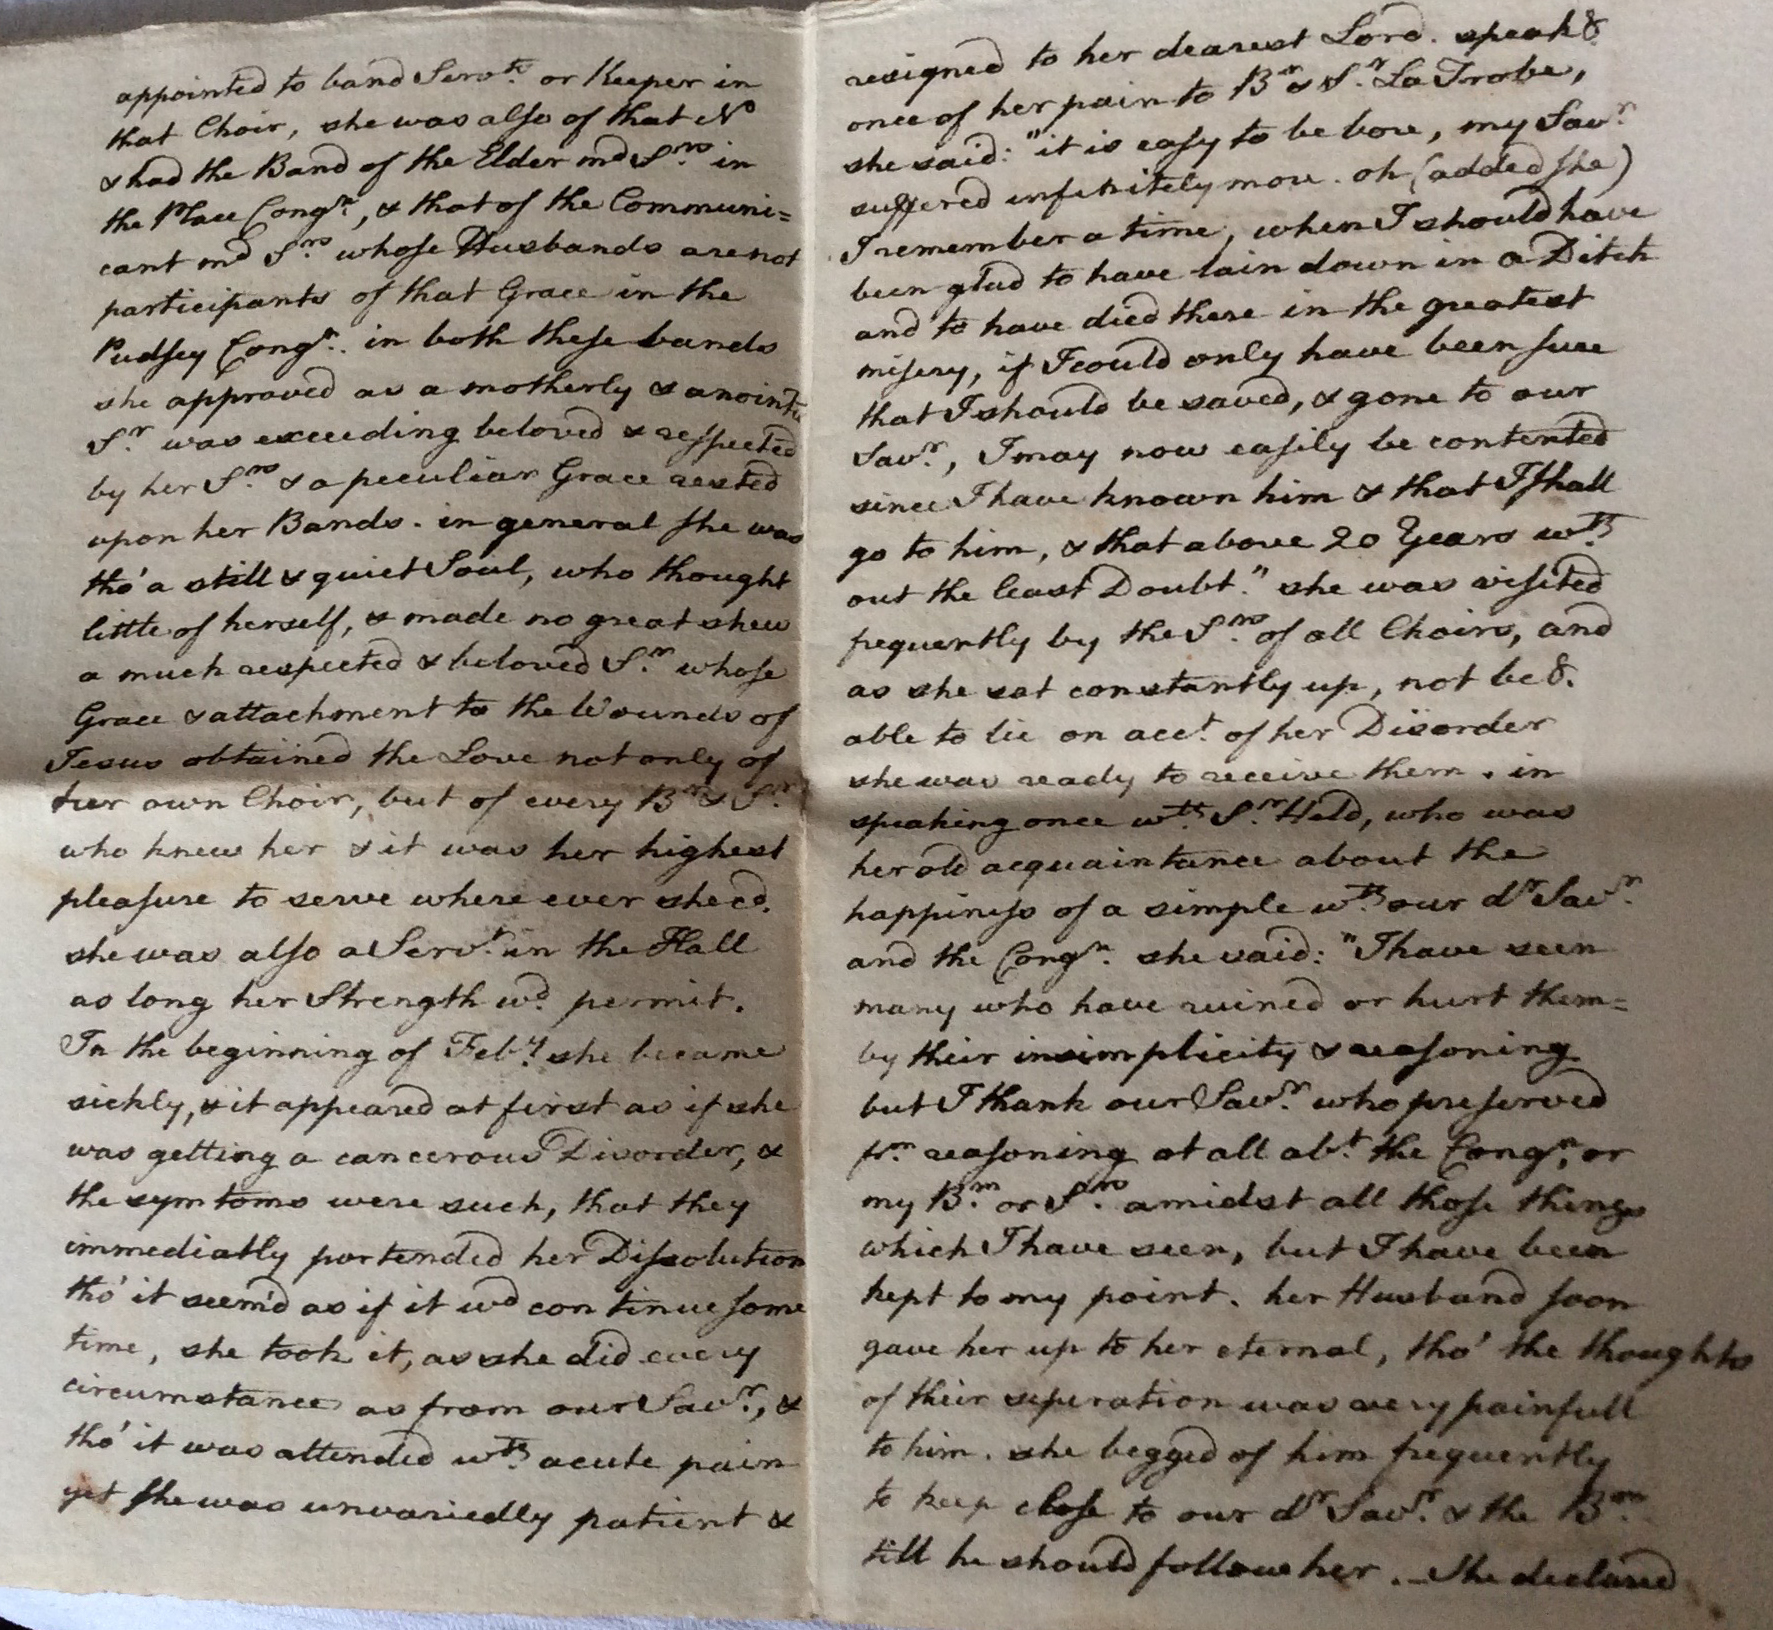 appointed to band Servts. or Keeper in
that Choir, she was also of that No
& had the Band of the Elder md Srs. in
the Place Congn., & that of the Communi=
cant md Srs. whose Husbands are not
participants of that Grace in the
Pudsey Congn. in both these bands
she approved as a motherly & anointed
Sr. was exceeding beloved & respected
by her Srs. & a peculiar Grace rested
upon her Bands. in general she was
tho' a still & quiet Soul, who thought
little of herself, & made no great shew
a much respected & beloved Sr. whose
Grace & attachment to the Wounds of
Jesus obtained the Love not only of
her own Choir, but of every Br. & Sr.
who knew her & it was her highest
pleasure to serve where ever she cd.
she was also a Servt. in the Hall
as long her Strength wd. permit.
In the beginning of Feby. she became
sickly, & it appeared at first as if she
was getting a cancerous Disorder, &
the symtoms were such, that they
immediatly portended her Dissolution
tho' it seem'd as if it wd continue some
time, she took it, as she did every
circumstance as from our Savr., &
tho' it was attended wth. acute pain
yet she was unvariedly patient &
resigned to her dearest Lord. speak&
once of her pain to Br & Sr. La Trobe,
she said: "it is easy to be bore, my Savr.
suffered infinitely more. oh (added she)
I remember a time, when I should have
been glad to have lain down in a Ditch
and to have died there in the greatest
misery, if I could only have been sure
that I should be saved, & gone to our
Savr., I may now easily be contented
since I have known him & that I shall
go to him, & that above 20 Years wth.
out the least Doubt." she was visited
frequently by the Srs. of all Choirs, and
as she sat constantly up, not be&.
able to lie on acct. of her Disorder
she was ready to receive them. in
speaking once wth. Sr. Held, who was
her old acquaintance about the
happiness of a simple wth. our dr Savr.
and the Congn. she said: "I have seen
many who have ruined or hurt them=
by their insimplicity & reasoning
but I thank our Savr. who preserved
frm. reasoning at all abt. the Congn., or
my Brn. or Srs. amidst all those things
which I have seen, but I have been
kept to my point. her Husband soon
gave her up to her eternal, tho' the thoughts
of their seperation was very painfull
to him. she begged of him frequently
to keep close to our dr Savr. & the Brn.
till he should follow her. _ She declared